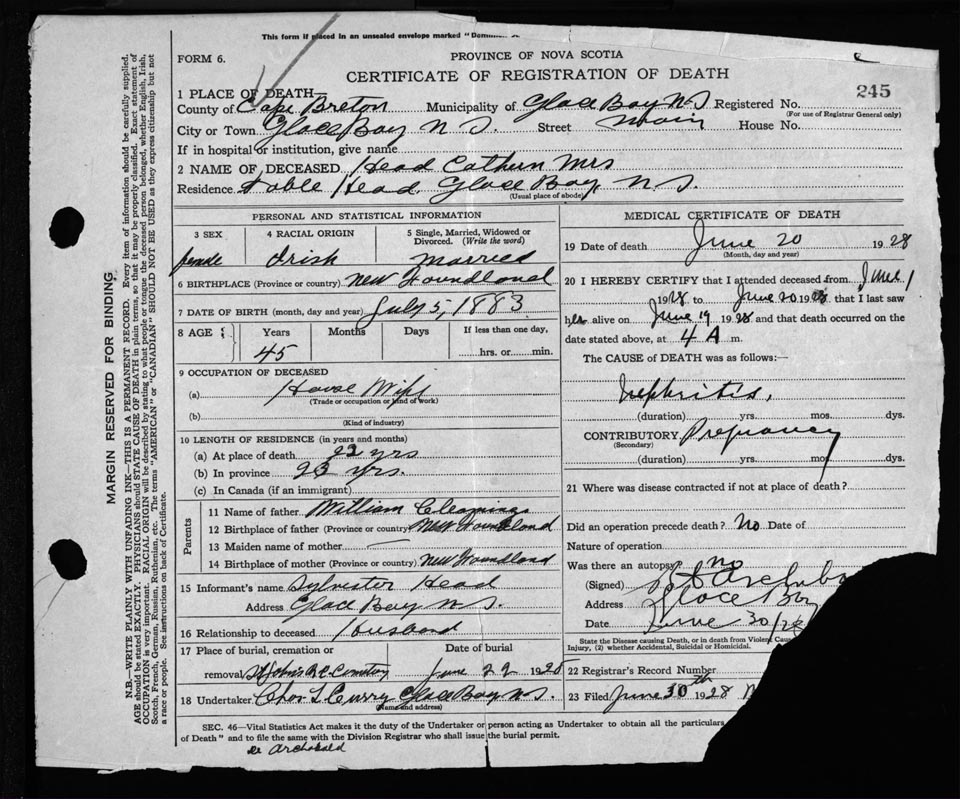 This form if placed in an unsealed envelope marked "Dominion
FORM 6.
PROVINCE OF NOVA SCOTIA
CERTIFICATE OF REGISTRATION OF DEATH
245
1 PLACE OF DEATH—
County of Cape Breton Municipality of Glace Bay N S Registered No.
(For use of Registrar General only)
City or Town Glace Bay N S. Street Main House No.
If in hospital or institution, give name
2 NAME OF DECEASED Head Cathern Mrs
Residence Table Head Glace Bay, N S.
(Usual place of abode)
PERSONAL AND STATISTICAL INFORMATION
3 SEX 4 RACIAL ORIGIN 5 Single, Married, Widowed or Divorced. (Write the word)
female Irish Married
6 BIRTHPLACE (Province or country) New Foundland
7 DATE OF BIRTH (month, day and year) July 5, 1883
8 AGE Years Months Days If less than one day,
45 hrs. or min.
9 OCCUPATION OF DECEASED
(a) House Wife
(Trade or occupation or kind of work)
(b)
(Kind of industry)
10 LENGTH OF RESIDENCE (in years and months)
(a) At place of death 23 yrs
(b) In province 23 yrs.
(c) In Canada (if an immigrant)
Parents
11 Name of father William
12 Birthplace of father (Province or country) New Foundland
13 Maiden name of mother —
14 Birthplace of mother (Province or country) New Foundland
15 Informant's name Sylvester Head
Address Glace Bay N S.
16 Relationship to deceased Husband
17 Place of burial, cremation or removal Date of burial
St John's R.C. Cemetery June 22 1928
18 Undertaker Chas L Curry Glace Bay N S.
(Name and address)
MEDICAL CERTIFICATE OF DEATH
19 Date of death June 20 1928
(Month, day and year)
20 I HEREBY CERTIFY that I attended deceased from June 1
1928 to June 20 1928 that I last saw
her alive on June 19 1928 and that death occurred on the
date stated above, at 4 A m.
The CAUSE of DEATH was as follows:—
Nephritis,
(duration) yrs. mos. dys.
CONTRIBUTORY Pregnancy
(Secondary)
(duration) yrs. mos. dys.
21 Where was disease contracted if not at place of death?
Did an operation precede death? No Date of
Nature of operation
Was there an autopsy no
(Signed) Archiba
Address Glace Bay
Date June 30/28
State the Disease causing Death, or in death from Violent Cau
Injury, (2) whether Accidental, Suicidal or Homicidal.
22 Registrar's Record Number
23 Filed June 30th 1928
SEC. 46—Vital Statistics Act makes it the duty of the Undertaker or person acting as Undertaker to obtain all the particulars
of Death" and to file the same with the Division Registrar who shall issue the burial permit.
Dr Archibald
MARGIN RESERVED FOR BINDING
N.B.—WRITE PLAINLY WITH UNFADING INK—THIS IS A PERMANENT RECORD. Every item of information should be carefully supplied.
AGE should be stated EXACTLY. PHYSICIANS should STATE CAUSE OF DEATH in plain terms, so that it may be properly classified. Exact statement of
OCCUPATION is very important. RACIAL ORIGIN will be described by stating to what people or tongue the deceased person belonged, whether English, Irish,
Scotch, French, German, Russian, Ruthenian, etc. The terms "AMERICAN" or "CANADIAN" SHOULD NOT BE USED as they express citizenship but not
a race or people. See instructions on back of Certificate.